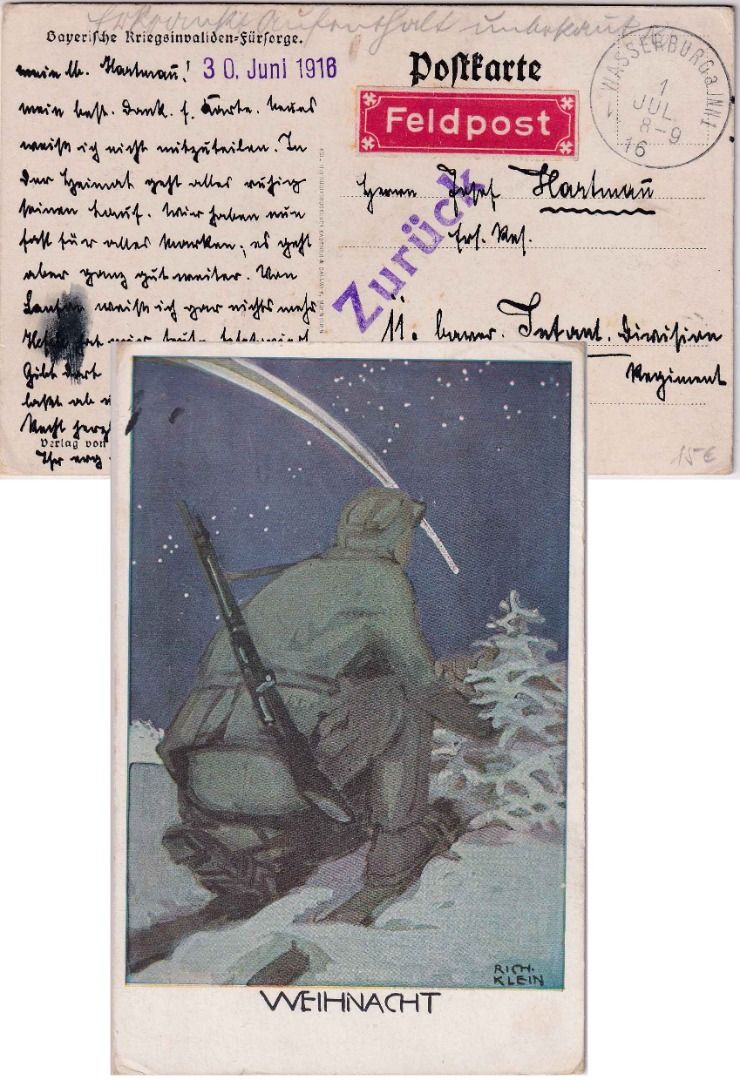 Erkrankt Aufenthalt unbekannt
Bayerische Kriegsinvaliden-Fürsorge.
mein lb. Hartmann! 30. Juni 1916
mein best. Dank f. Karte. Neues
weiß ich nicht mitzuteilen. In
der Heimat geht alles ruhig
seinen Lauf. Wir haben nun
fast für alles Marken; es geht
aber ganz gut weiter. Von
weiß ich gar nichts mehr
hat mir
Gibt dort
laßt ab
Recht herz
Ihr erg
Verlag von
Postkarte
Feldpost
WASSERBURG a. INN 1
1
JUL.
8-9
16
Zurück
Herrn Josef Hartmann
Ers. Res.
11. bayer. Infant. Division
Regiment
15€
RICH.
KLEIN
WEIHNACHT